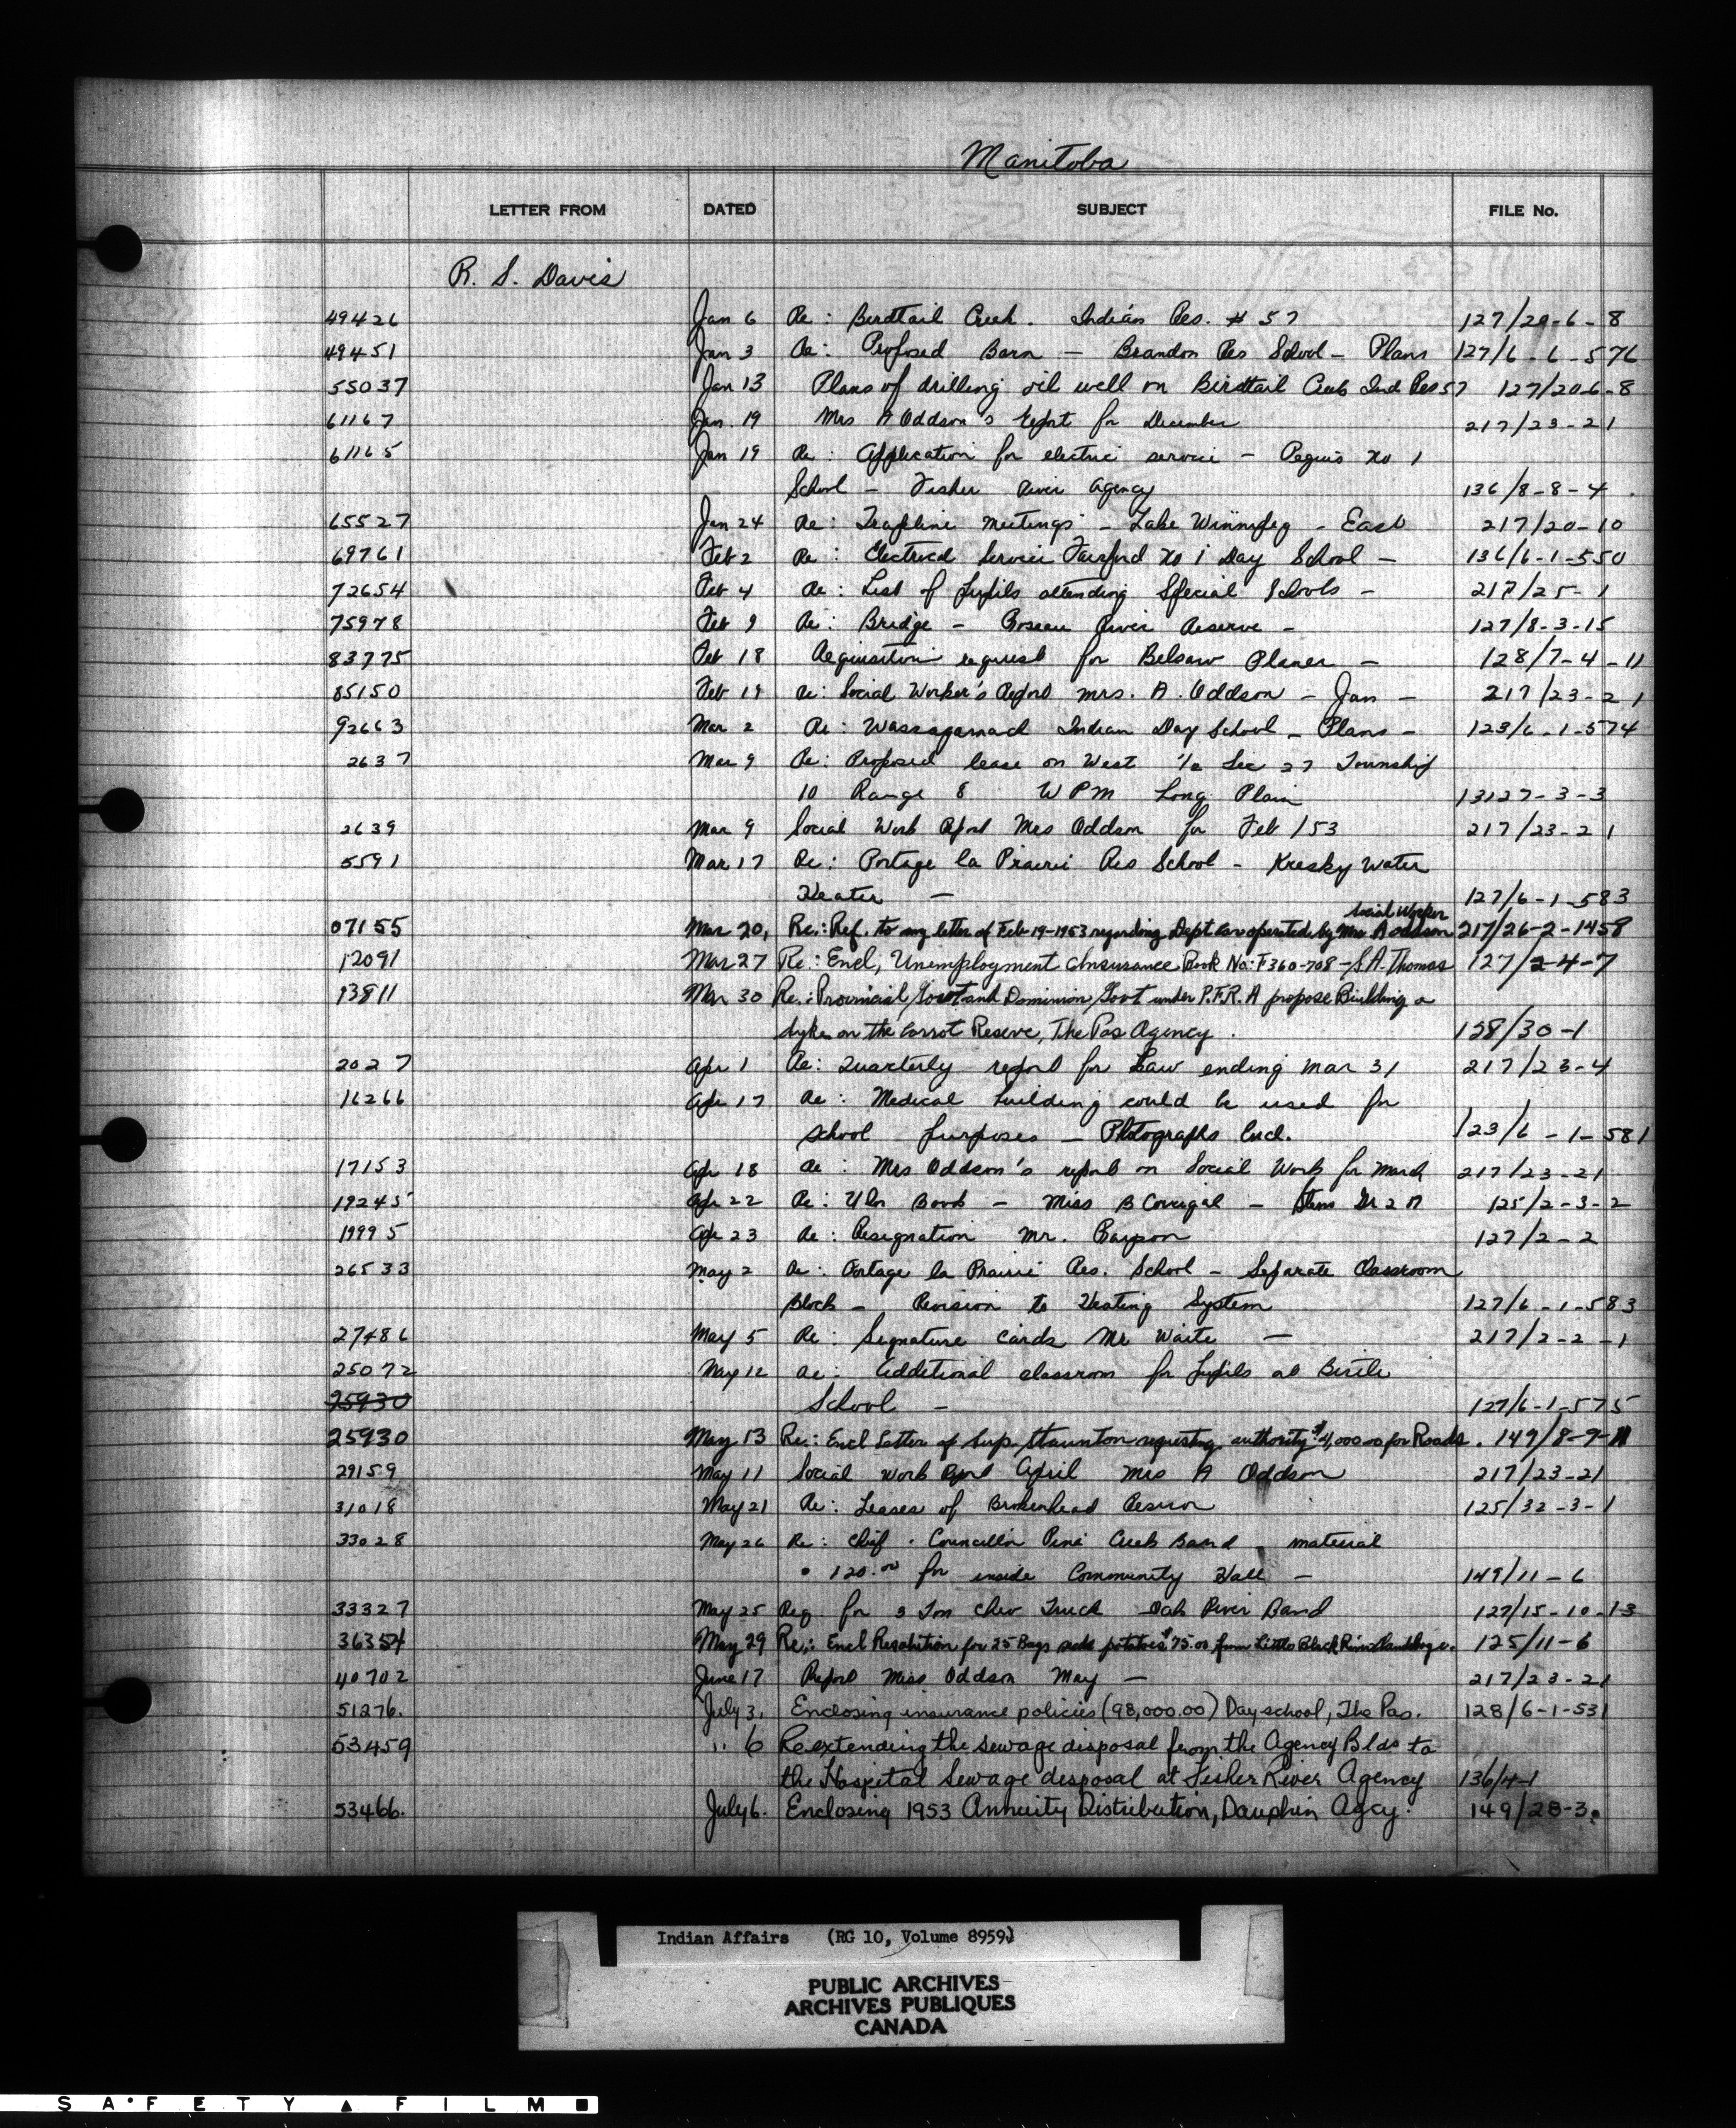 Manitoba
LETTER FROM DATED SUBJECT FILE No.
R. S. Davis
49426 Jan 6 Re: Birdtail Creek. Indian Res. # 57 127/20-6-8
49451 Jan 3 Re: Proposed Barn - Brandon Res School - Plans 127/6-6-576
55037 Jan 13 Plans of drilling oil well on Birdtail Creek Ind Res 57 127/20-6-8
61167 Jan. 19 Mrs A Oddson's report for December 217/23-21
61165 Jan 19 Re: Application for electric service - Peguis No 1
School - Fisher River Agency 136/8-8-4
65527 Jan 24 Re: Trapline meetings - Lake Winnipeg - East 217/20-10
69761 Feb 2 Re: Electrical Service Fairford No 1 Day School - 136/6-1-550
72654 Feb 4 Re: List of pupils attending Special Schools - 217/25-1
75978 Feb 9 Re: Bridge - Roseau River Reserve - 127/8-3-15
83775 Feb 18 Requisition request for Belsaw Planer - 128/7-4-11
85150 Feb 19 Re: Social Worker's Report Mrs. A. Oddson - Jan - 217/23-21
92663 Mar 2 Re: Wassagamach Indian Day School - Plans - 123/6-1-574
2637 Mar 9 Re: Proposed lease on West 1/2 Sec 27 Township
10 Range 8 WPM Long Plain 13127-3-3
2639 Mar 9 Social Work Report Mrs Oddson for Feb /53 217/23-21
5591 Mar 17 Re: Portage la Prairie Res School - Kresky Water
Heater - 127/6-1-583
Social Worker
07155 Mar 20, Re: Ref. to my letter of Feb-19-1953 regarding Dept car operated by Mrs A oddson 217/26-2-1458
12091 Mar 27 Re: Encl, Unemployment Insurance Book No: F360-708 - S.A. Thomas 127/2-4-7
13811 Mar 30 Re: Provincial Govt and Dominion Govt under P.F.R.A propose Building a
dyke on the Carrot Reserve, The Pas Agency. 128/30-1
2027 Apr 1 Re: Quarterly report for Law ending Mar 31 217/23-4
16266 Apr 17 Re: Medical building could be used for
school purposes - Photographs Encl. 123/6-1-581
17153 Apr 18 Re: Mrs Oddson's report on Social Work for March 217/23-21
19245 Apr 22 Re: Book - Miss B - 125/2-3-2
19995 Apr 23 Re: Resignation Mr. 127/2-2
26533 May 2 Re: Portage la Prairie Res. School - Separate Classroom
Block - Revision to Heating System 127/6-1-583
27486 May 5 Re: Signature cards Mr Waite - 217/2-2-1
25072 May 12 Re: Additional classroom for pupils at Birtle
25930 School - 127/6-1-575
25930 May 13 Re: Encl Letter of Sup. Staunton requesting authority $4,000.00 for Roads. 149/8-9-11
29159 May 11 Social Work Report April Mrs A Oddson 217/23-21
31018 May 21 Re: Leases of Brokenhead Reserve 125/32-3-1
33028 May 26 Re: Chief . Councillor Pine Creek Band material
120.00 for inside Community Hall - 149/11-6
33327 May 25 Req. for 3 Ton Chev Truck Oak River Band 127/15-10-13
36354 May 29 Re: Encl Resolution for 25 Bags seed potatoes $75.00 from Little Black River 125/11-6
40702 June 17 Report Miss Oddson May - 217/23-21
51276. July 3, Enclosing insurance policies (98,000.00) Day school, The Pas. 128/6-1-531
53459 " 6 Re extending the sewage disposal from the Agency Blds to
the Hospital Sewage disposal at Fisher River Agency 136/4-1
53466. July 6. Enclosing 1953 Annuity Distribution, Dauphin Agcy. 149/28-3.
Indian Affairs (RG 10, Volume 8959)
PUBLIC ARCHIVES
ARCHIVES PUBLIQUES
CANADA
SAFETY FILM